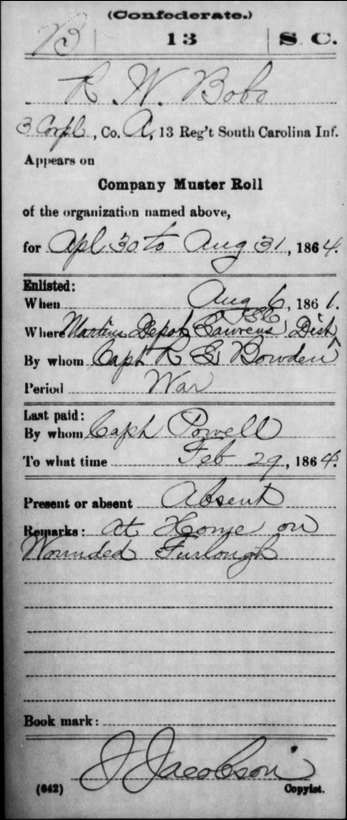 (Confederate.)
B | 13 | S. C.
R. W. Bobo
3 Corpl, Co. A, 13 Reg't South Carolina Inf.
Appears on
Company Muster Roll
of the organization named above,
for Apl 30 to Aug 31, 1864.
Enlisted:
When Aug 6, 1861.
Where Martins Depot Laurens Dist
By whom Capt R L Bowden
Period War
Last paid:
By whom Capt Powell
To what time Feb 29, 1864.
Present or absent Absent
Remarks: At Home on
Wounded Furlough
Book mark:
J Jacobson
(642) Copyist.